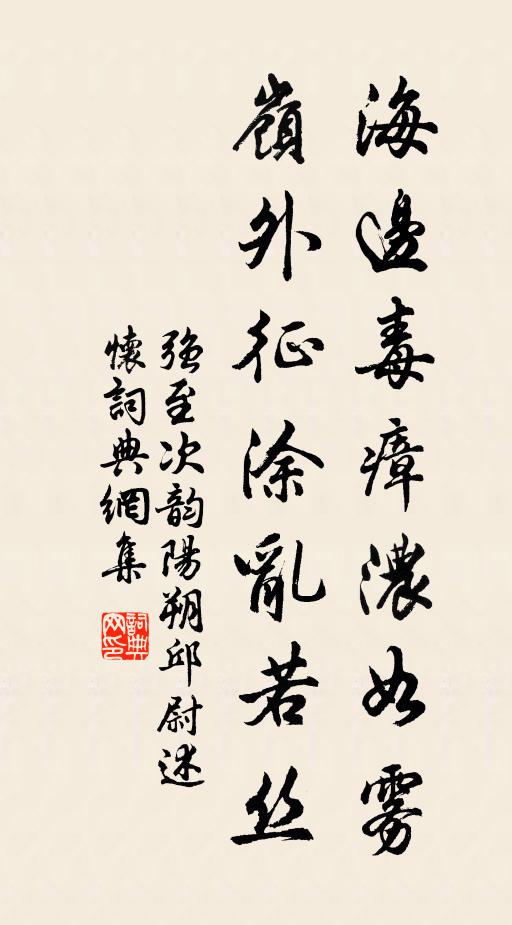 海邊毒瘴濃如雾
嶺外征涂亂若丝
强至次韵陽朔邱尉述
懷詞典網集
詞典网印